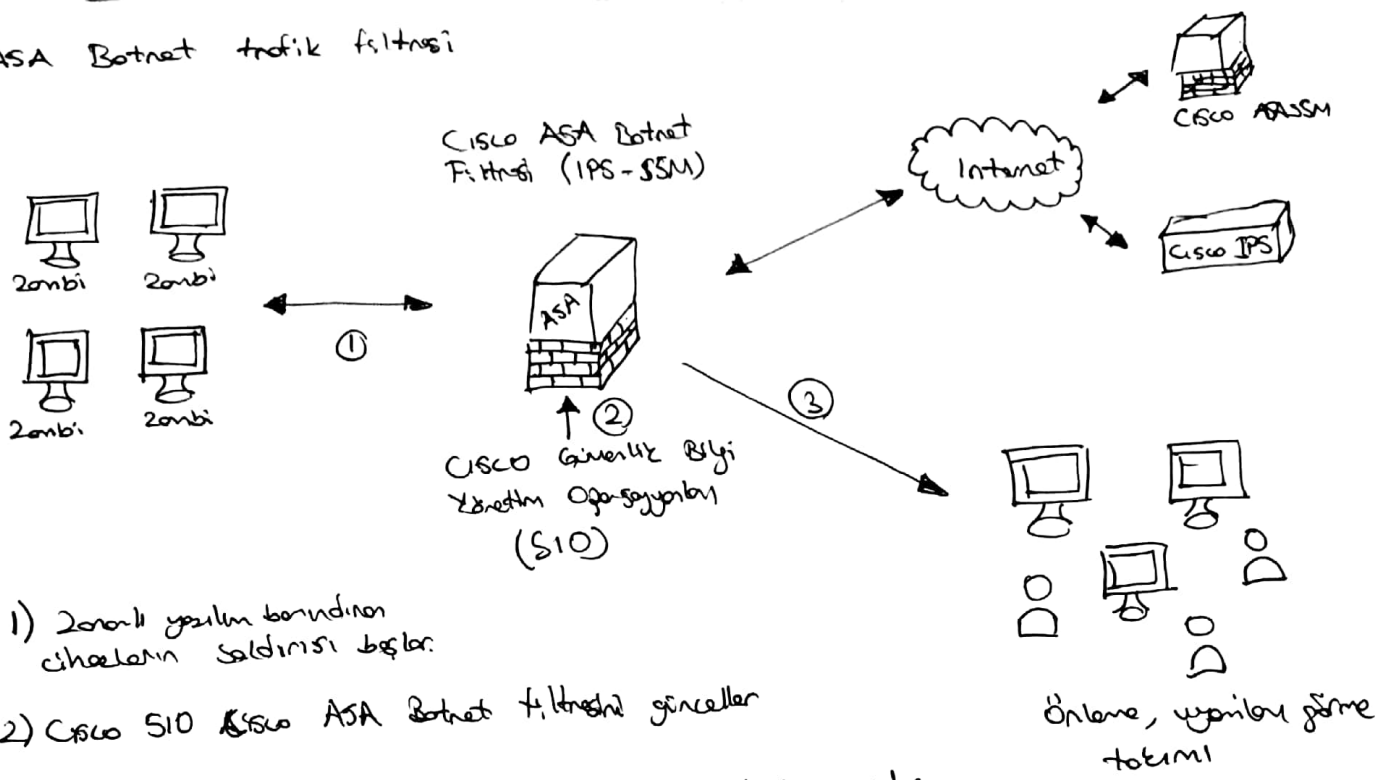 ASA Botnet trafik filtresi
Cisco ASA Botnet
Filtresi (IPS-SSM)
Internet
Cisco
Cisco IPS
Zombi
Zombi
Zombi
Zombi
1
ASA
2
3
Cisco Güvenlik Bilgi
Yönetim Operasyonları
(SIO)
1) Zararlı yazılım barındıran
cihazların saldırısı başlar.
2) Cisco SIO Cisco ASA Botnet filtresini günceller
Önleme, uyarıları görme
takımı